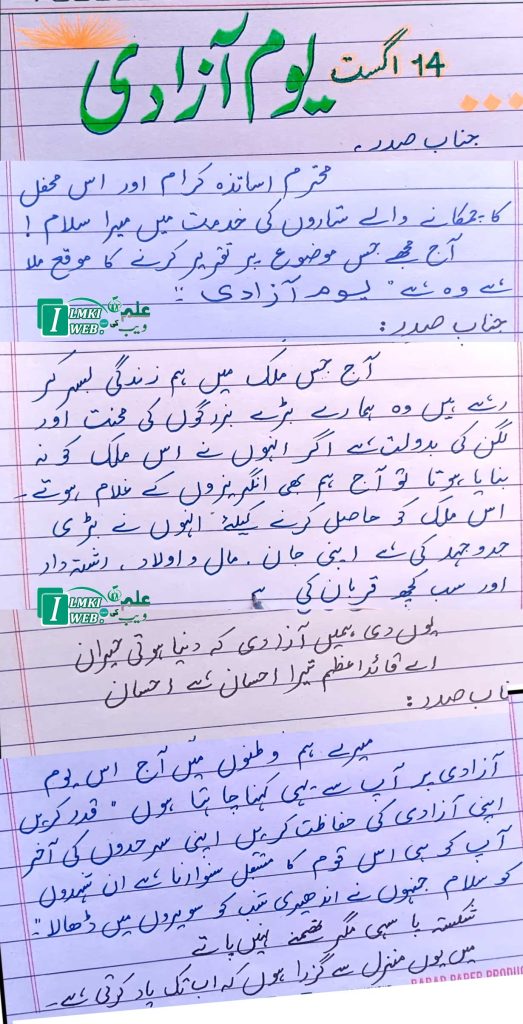 14 اگست یوم آزادی
جناب صدر.
محترم اساتذہ کرام اور اس محفل
کا چمکانے والے ستاروں کی خدمت میں میرا سلام !
آج مجھے جس موضوع پر تقریر کرنے کا موقع ملا
ہے وہ ہے " یوم آزادی "
ILMKI WEB. علم کی ویب
جناب صدر :
آج جس ملک میں ہم زندگی بسر کر
رہے ہیں وہ ہمارے بڑے بزرگوں کی محنت اور
لگن کی بدولت ہے اگر انہوں نے اس ملک کو نہ
بنایا ہوتا تو آج ہم بھی انگریزوں کے غلام ہوتے۔
اس ملک کو حاصل کرنے کیلئے انہوں نے بڑی
جدوجہد کی ہے اپنی جان ، مال و اولاد ، رشتہ دار
اور سب کچھ قربان کی
ILMKI WEB. علم کی ویب
یوں دی ہمیں آزادی کہ دنیا ہوتی حیران
اے قائداعظم تیرا احسان ہے احسان
ناب صدر :
میرے ہم وطنوں میں آج اس یوم
آزادی پر آپ سے یہی کہنا چاہتا ہوں " قدر کریں
اپنی آزادی کی حفاظت کریں اپنی سرحدوں کی آخر
آپ کو ہی اس قوم کا مستقبل سنوارنا ہے ان شہیدوں
کو سلام جنہوں نے اندھیری شب کو سویروں میں ڈھالا "
شکستہ پا سہی مگر تھمنے نہیں پاتے
میں یوں منزل سے گزرا ہوں کہ اب تک یاد کرتی ہے۔